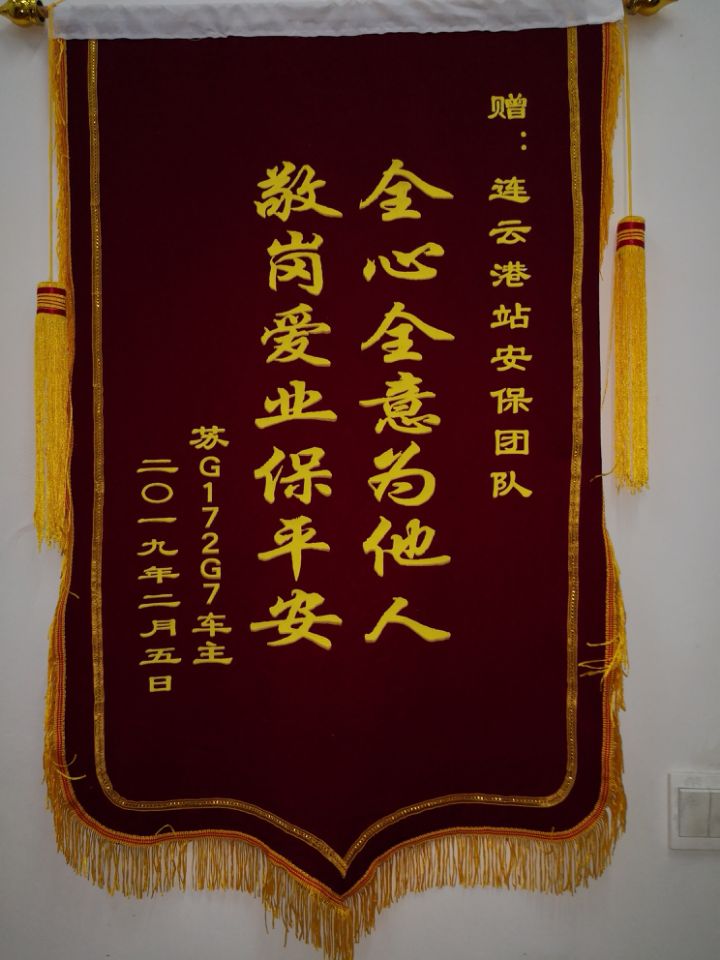 赠：连云港站安保团队
全心全意为他人
敬岗爱业保平安
苏G172G7车主
二〇一九年二月五日